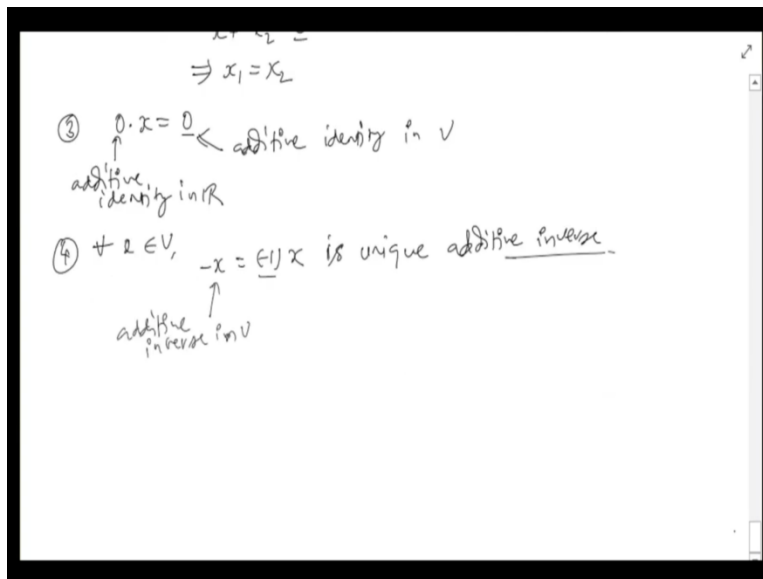 ⇒ x₁ = x₂
③ 0 · x = 0 ← additive identity in V
additive
identity in ℝ
④ ∀ x ∈ V, -x = (-1) x is unique additive inverse
additive
inverse in V